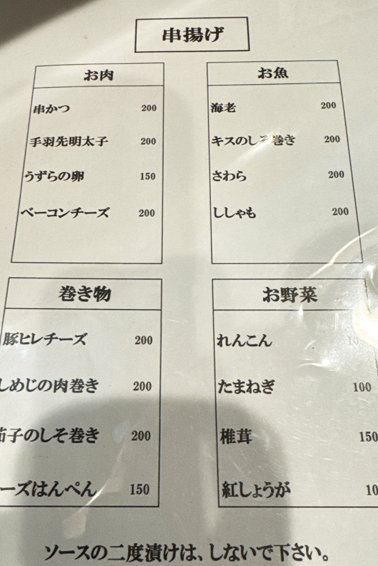 串揚げ
お肉
串かつ 200
手羽先明太子 200
うずらの卵 150
ベーコンチーズ 200
お魚
海老 200
キスのしそ巻き 200
さわら 200
ししゃも 200
巻き物
豚ヒレチーズ 200
しめじの肉巻き 200
茄子のしそ巻き 200
ーズはんぺん 150
お野菜
れんこん
たまねぎ 100
椎茸 150
紅しょうが 10
ソースの二度漬けは、しないで下さい。